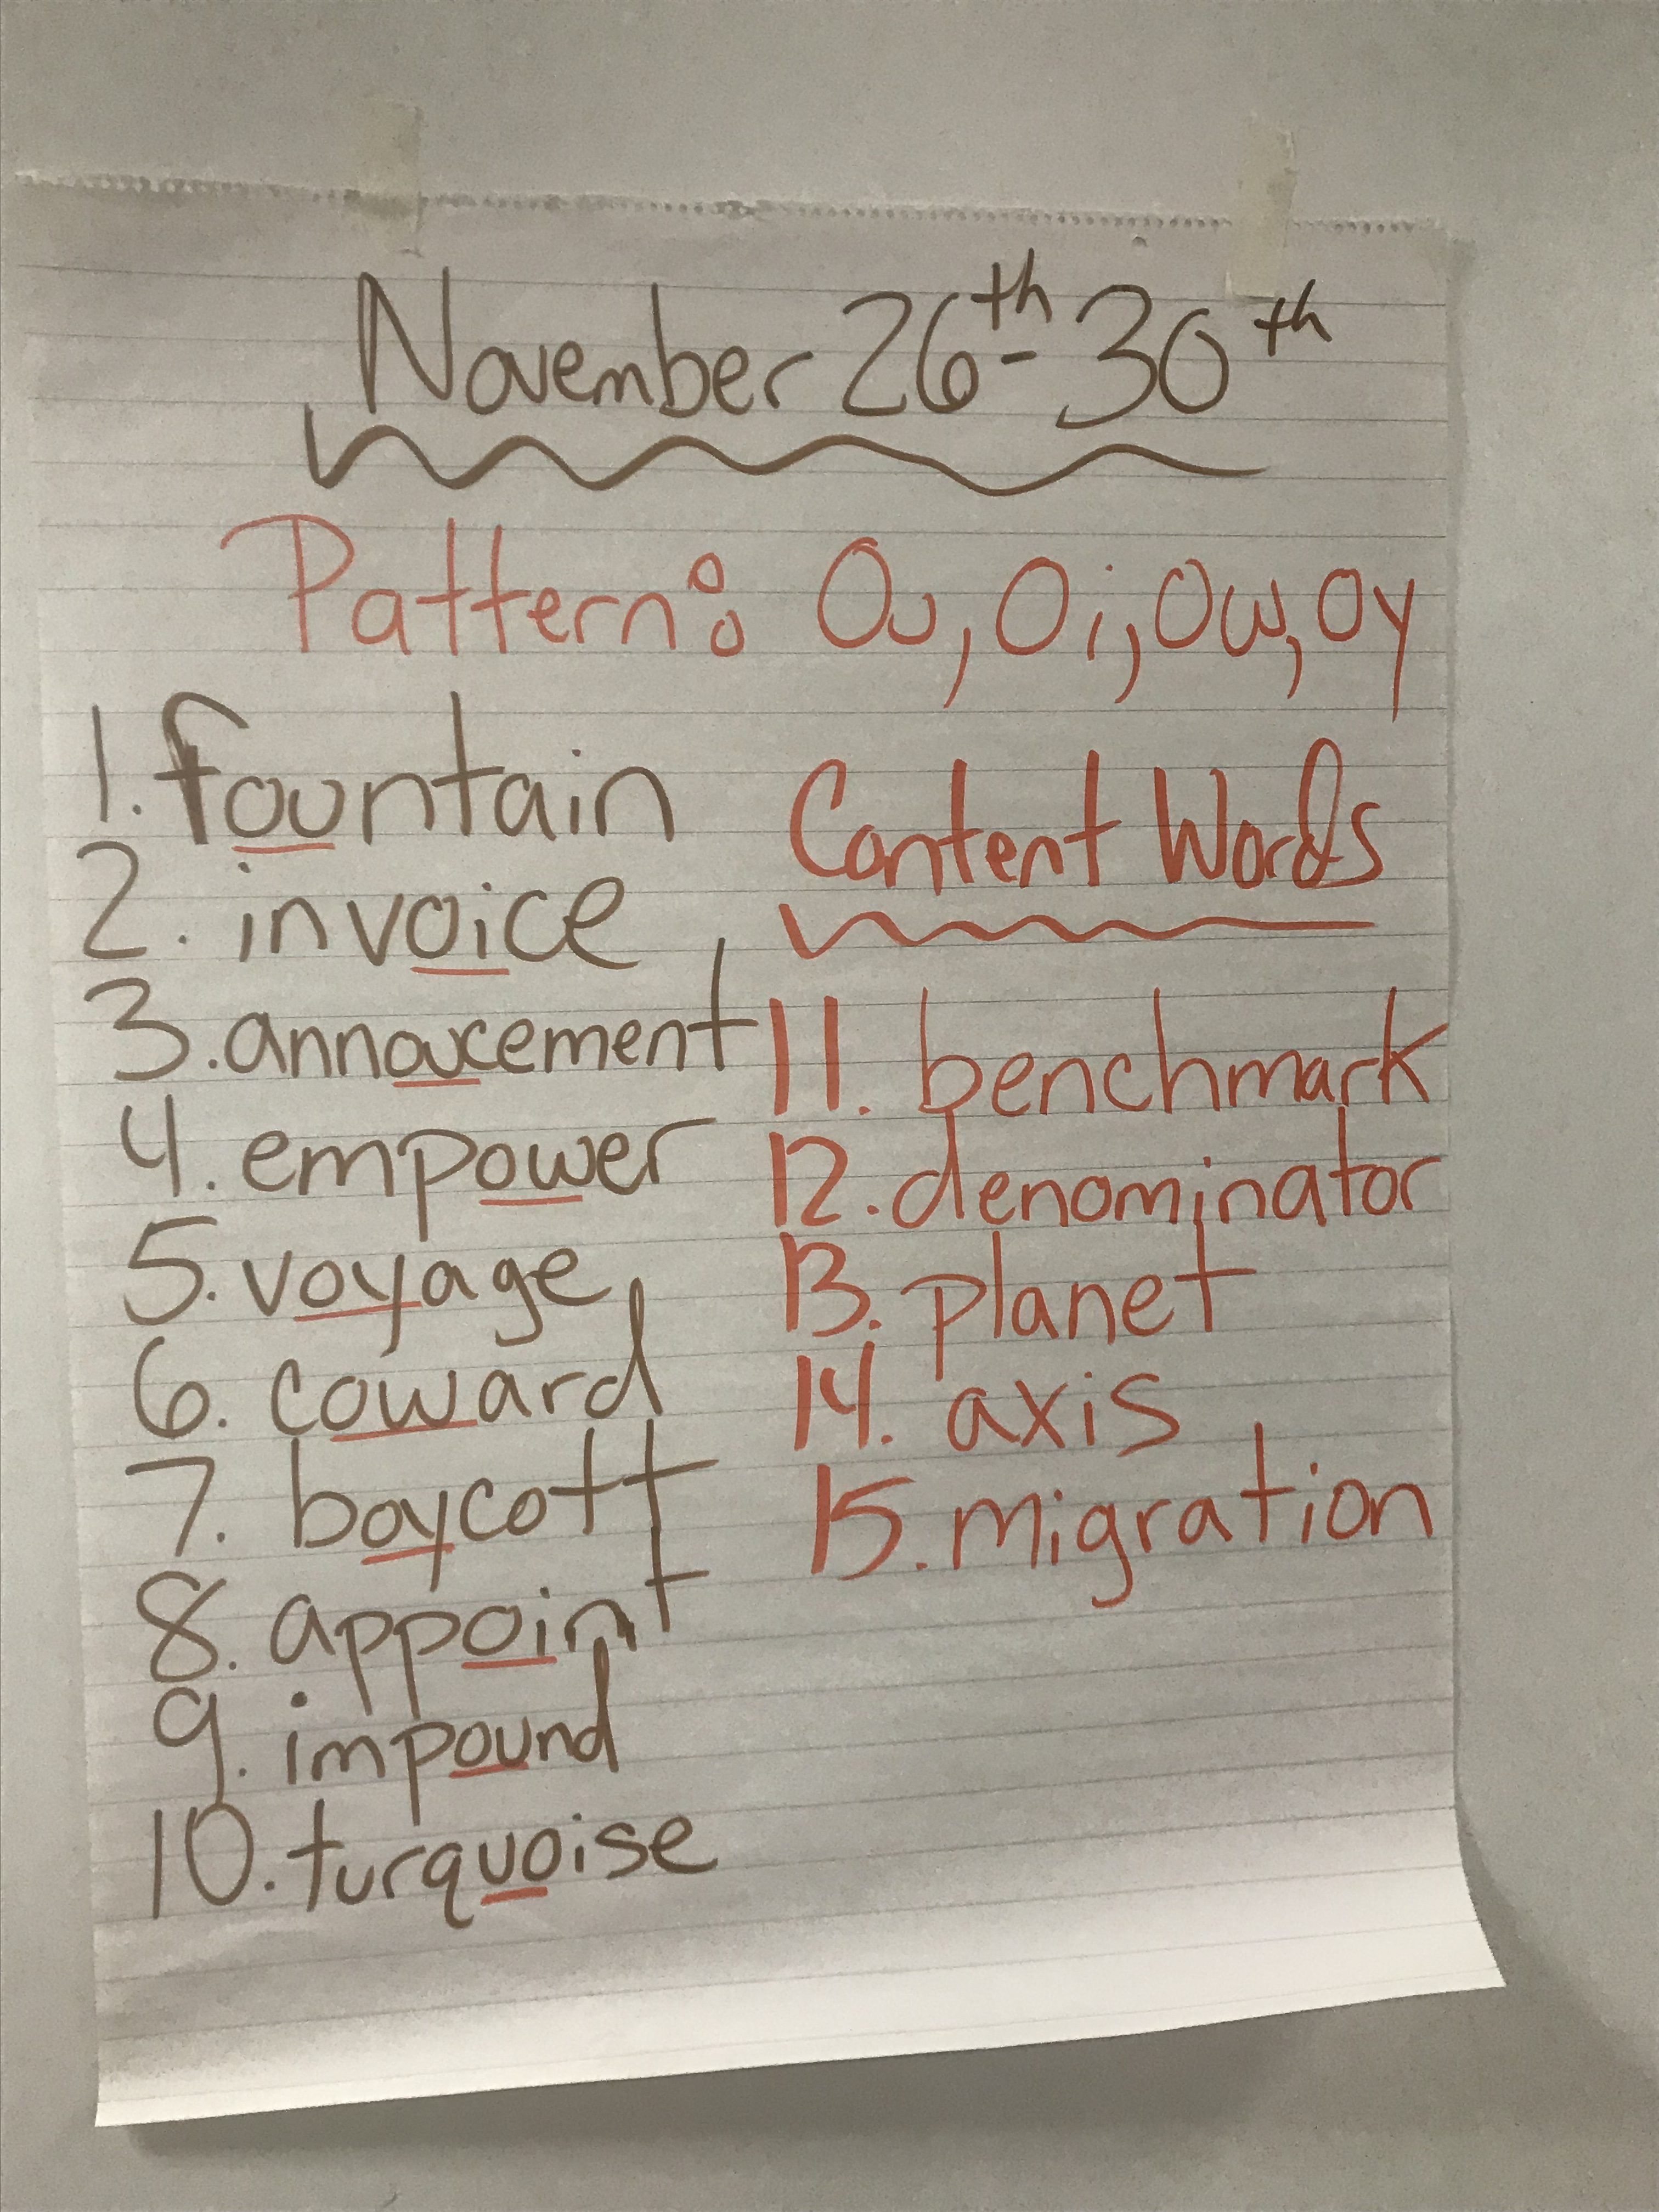 November 26th - 30th
Pattern: Ou, Oi, Ow, Oy
1. fountain
2. invoice
3. annoucement
4. empower
5. voyage
6. coward
7. boycott
8. appoint
9. impound
10. turquoise
Content Words
11. benchmark
12. denominator
13. planet
14. axis
15. migration